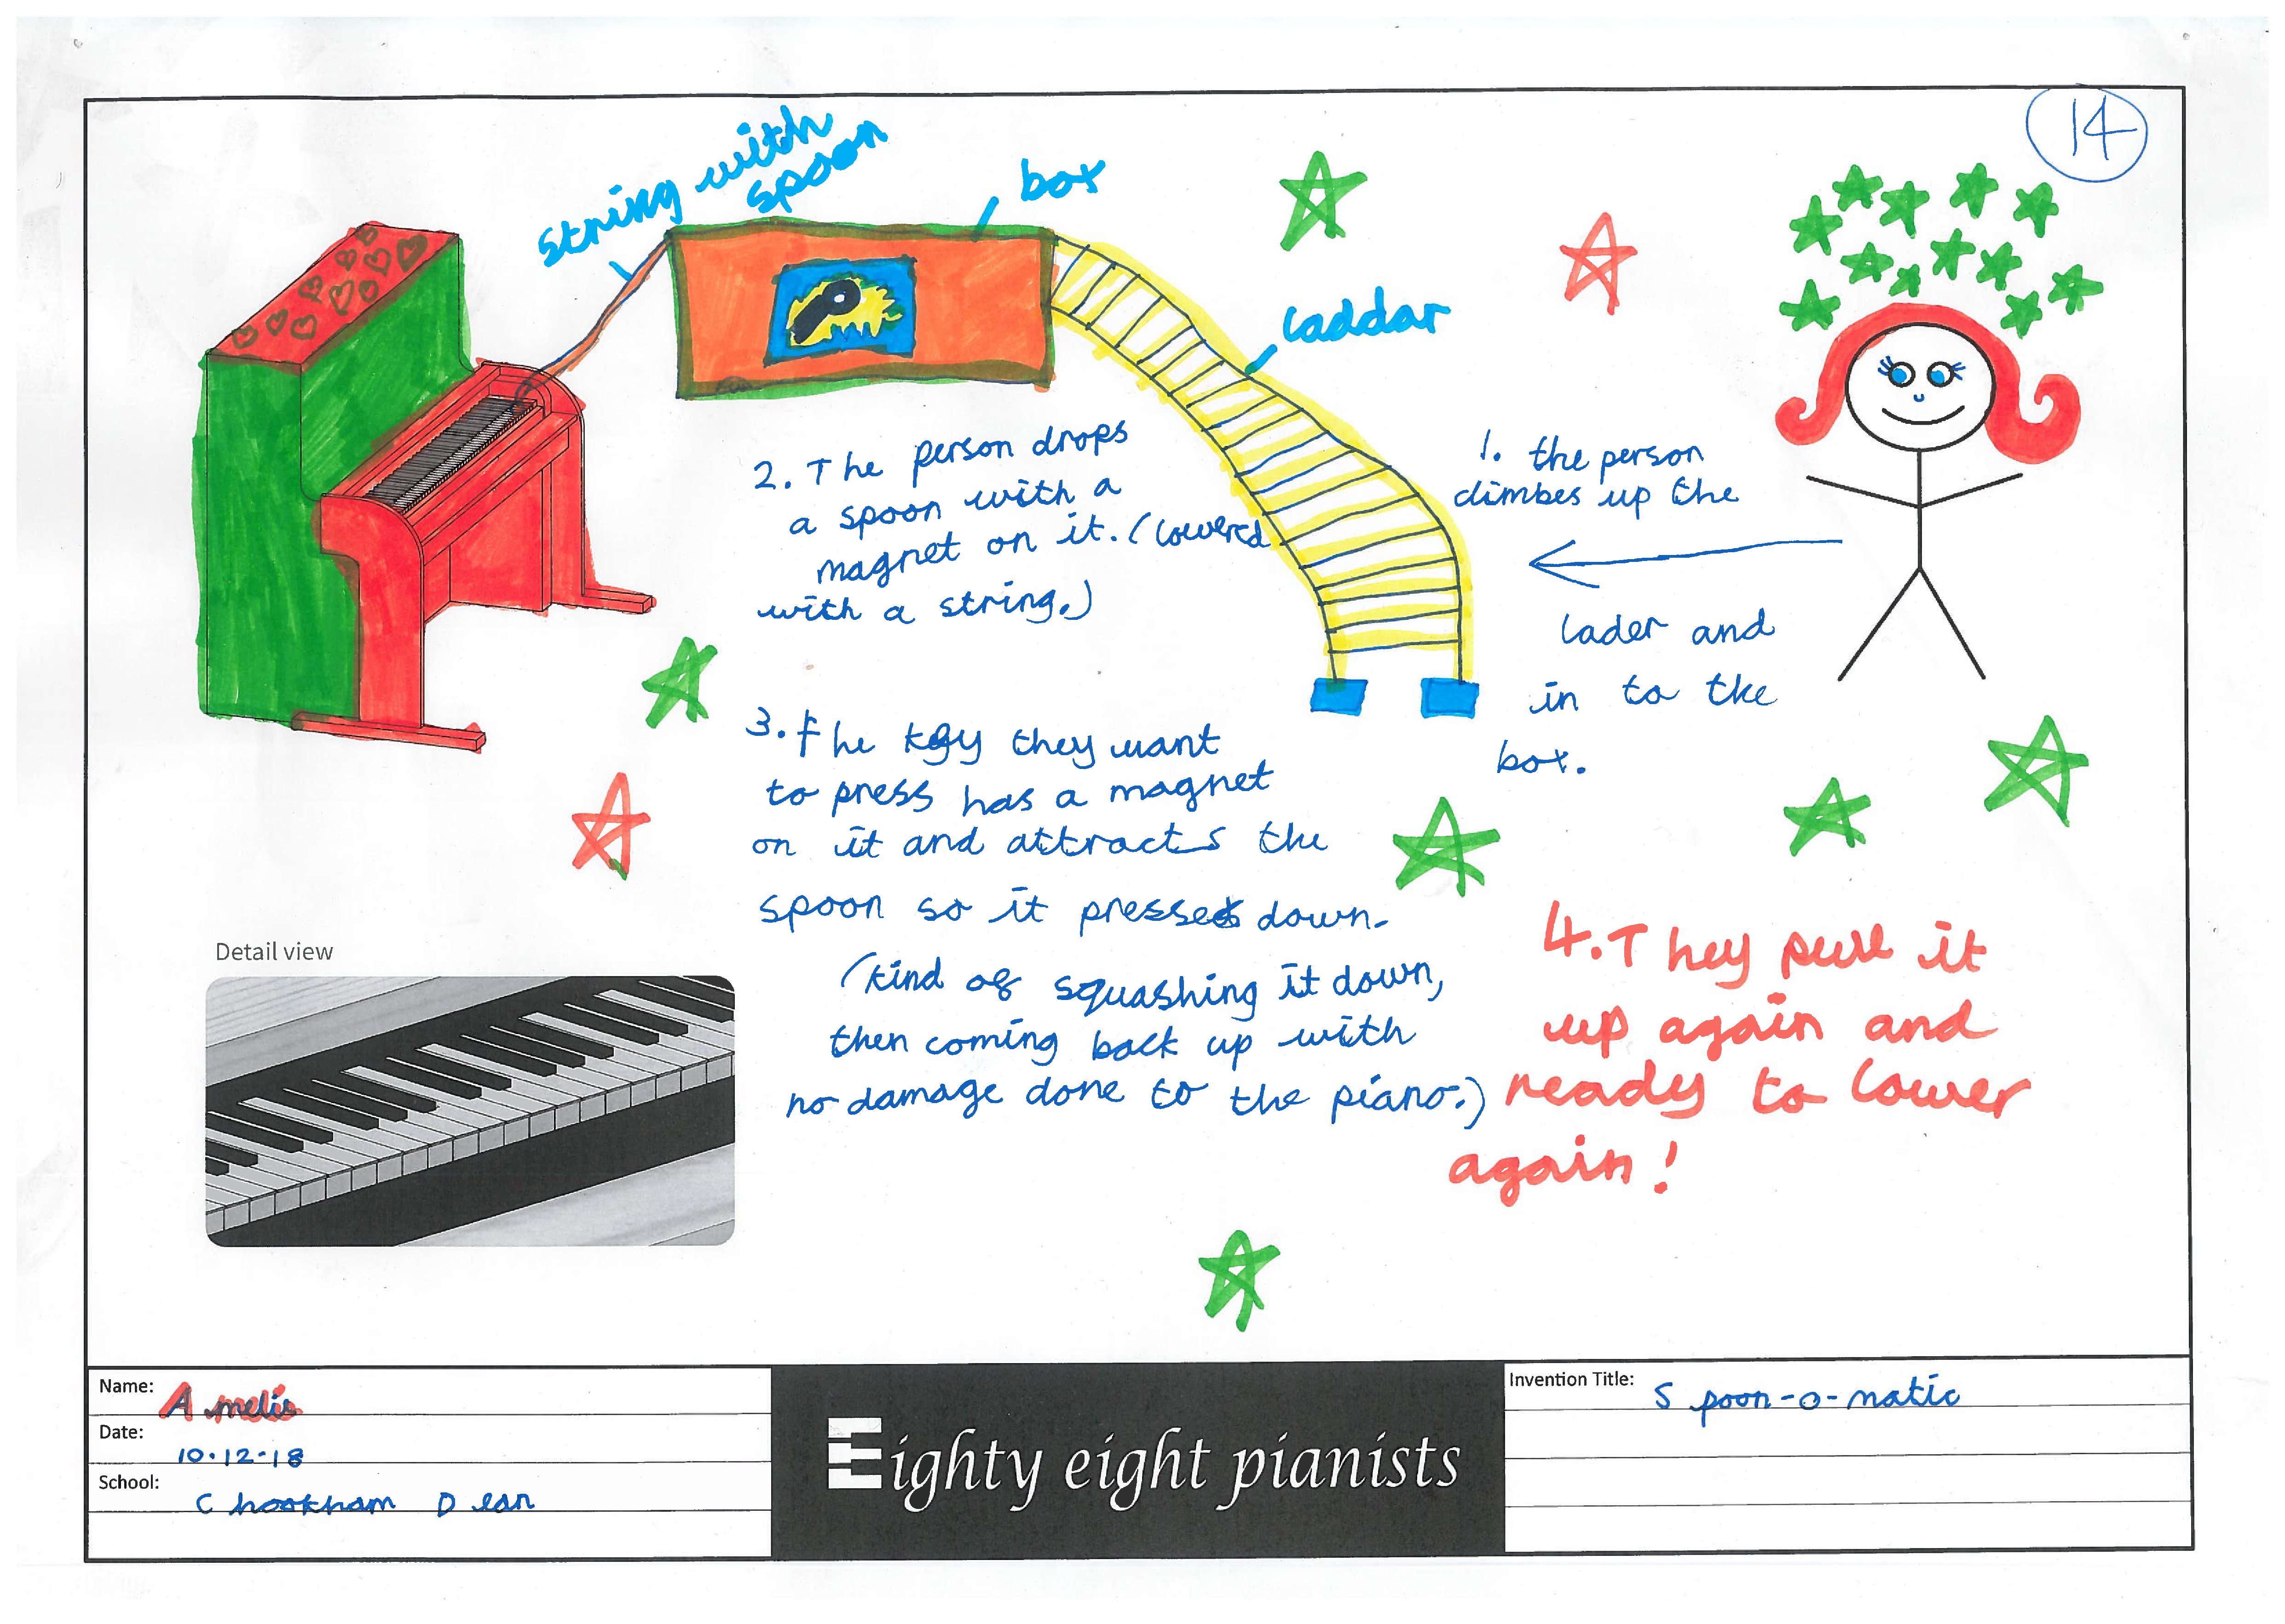 14
string with
spoon
box
laddar
1. the person
climbes up the
lader and
in to the
box.
2. The person drops
a spoon with a
magnet on it. (lowered
with a string.)
3. The key they want
to press has a magnet
on it and attracts the
spoon so it presses down.
(kind of squashing it down,
then coming back up with
no damage done to the piano.)
4. They pull it
up again and
ready to lower
again!
Detail view
Name: Amelie
Date: 10.12-18
School: Chookham Dean
Eighty eight pianists
Invention Title: Spoon-o-matic